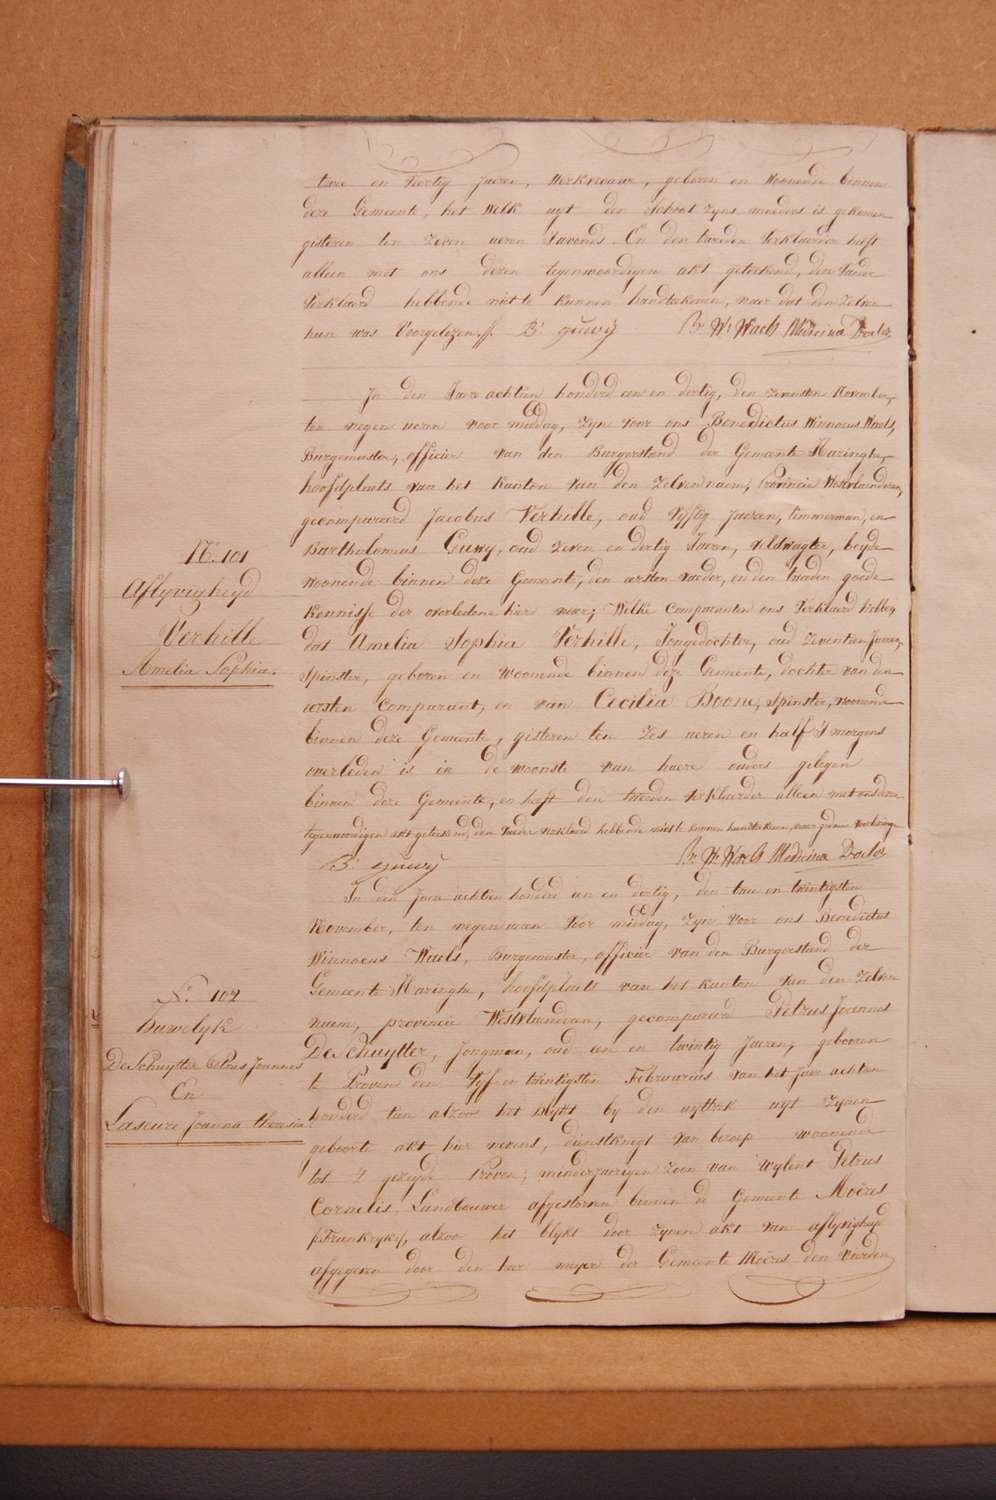 twee en Veertig Jaeren, Werkvrouwe, geboren en Woonende binnen
deze Gemeente, het Welk uyt den Schoot zyns moeders is gekomen
gisteren ten zeven ueren s'avonds. En den tweeden Verklaerder heeft
alleen met ons dezen tegenwoordigen akt geteekend, den Vader
Verklaerd hebbende niet te kunnen handteekenen, naer dat den zelven
hun was Voorgelezen. B. Guwÿ Br. Ws. Waels Medicina Doctor
In den Jaere achtien honderd een en dertig, den zevensten November,
ten negen ueren voor middag, zyn voor ons Benedictus Winnocus Waels,
Burgemeester, officier van den Burgerstand der Gemeente Haringhe,
hoofdplaets van het kanton van den zelven naem, Provincie Westvlaenderen,
gecompareerd Jacobus Verhille, oud Vyftig Jaeren, timmerman, en
Bartholomeus Guwy, oud zeven en dertig Jaeren, veldwagter, beyde
woonende binnen deze Gemeente, den eersten vader, en den tweeden goede
kennisse der overledene hier naer; Welke Comparanten ons Verklaerd hebben
dat Amelia Sophia Verhille, Jongedochter, oud zeventien Jaeren,
Spinster, geboren en woonende binnen deze Gemeente, dochter van den
eersten Comparant, en van Cecilia Boone, Spinster, woonende
binnen deze Gemeente, gisteren ten zes ueren en half 's morgens
overleden is in de woonste van haere ouders gelegen
binnen deze Gemeente, en heeft den tweeden verklaerder alleen met ons dezen
tegenwoordigen akt geteekend, den Vader verklaerd hebbende niet te kunnen handteekenen, naer gedaene voorlezing
B. Guwÿ Br. Ws. Waels Medicina Doctor
N.° 101
Aflyvigheyd
Verhille
Amelia Sophia.
In den Jaere achtien honderd een en dertig, den twee en twintigsten
November, ten negen ueren Voor middag, zyn voor ons Benedictus
Winnocus Waels, Burgemeester, officier van den Burgerstand der
Gemeente Haringhe, hoofdplaets van het kanton van den Zelven
naem, provincie Westvlaenderen, gecompareerd Petrus Joannes
DeSchuytter, Jongman, oud een en twintig Jaeren, gebooren
te Proven den Vyf en twintigsten Februarius van het Jaer achtien
honderd tien alzoo het blykt by den uyttrek uyt zynen
geboorte akt hier nevens, dienstknegt van beroep woonende
tot 't gezeyde Proven; minderjaerigen zoon van wylent Petrus
Cornelis, Landbouwer afgestorven binnen de Gemeente Moëres
(Frankryk), alzoo het blykt door zynen akt van aflyvigheyd
afgegeven door den heer meyer der Gemeente Moëres den vierden
N.° 102
Huwelyk
DeSchuytter Petrus Joannes
En
Laseure Joanna theresia